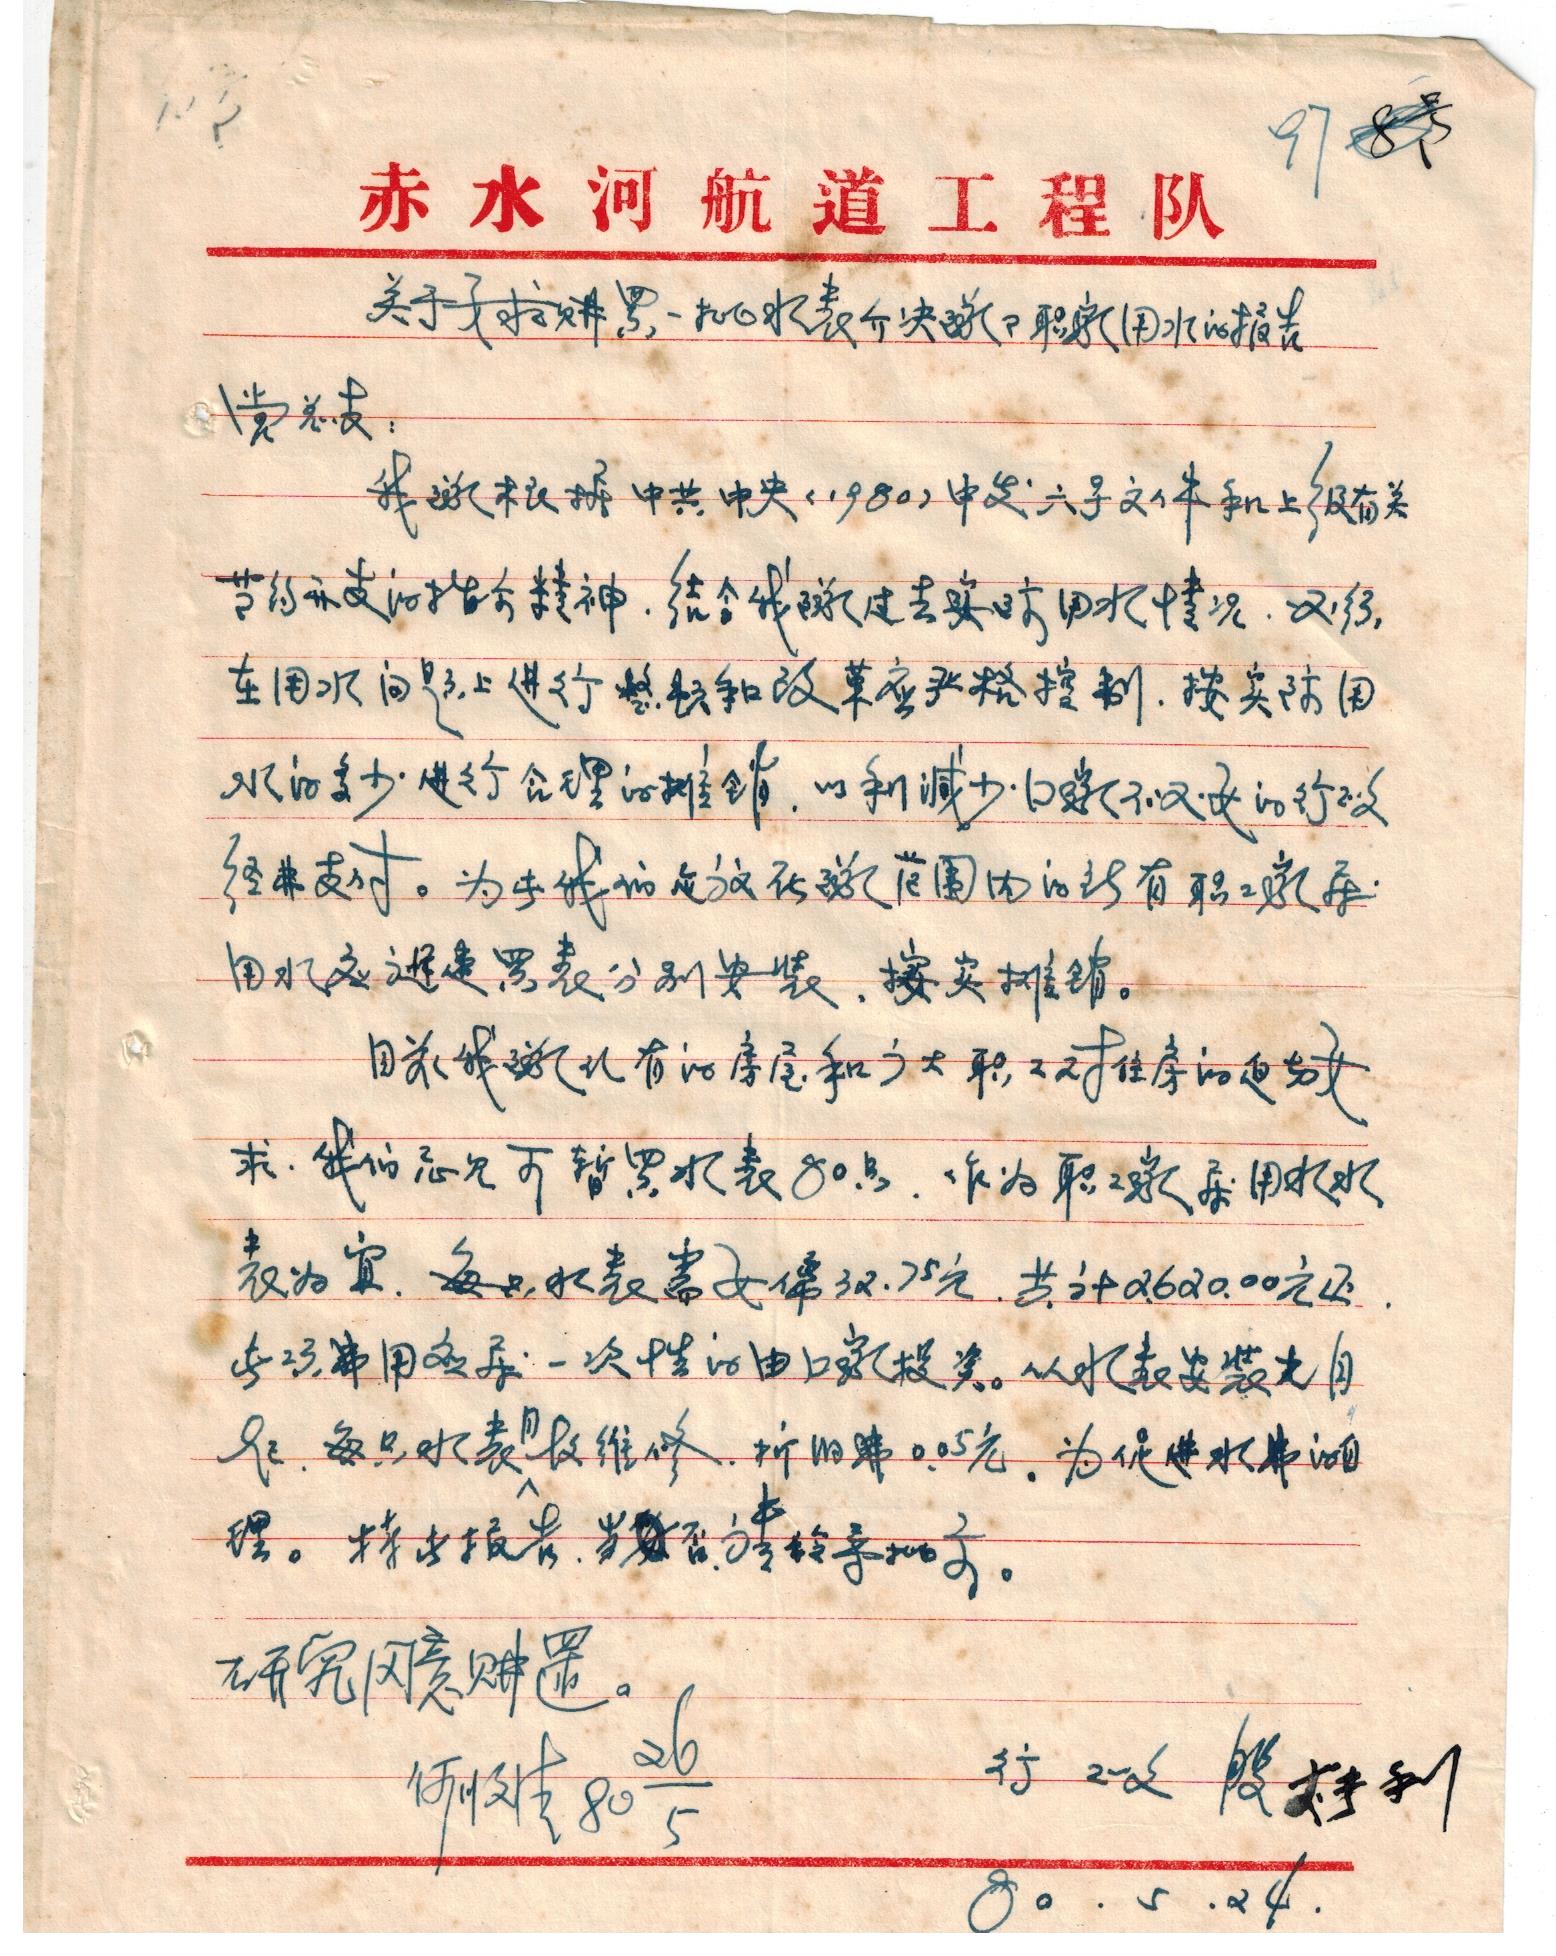 97 8号
赤水河航道工程队
关于要求购买一批水表介决队职家用水的报告
党总支：
我队根据中共中央（1980）中发六号文件和上级有关
节约开支的指示精神．结合我队过去实际用水情况．必须
在用水问题上进行整顿和改革应严格控制．按实际用
水的多少进行合理的摊销．以利减少口队不必要的行政
经费支付。为此我们应放在队范围内的所有职工家属
用水应迅速买表分别安装．按实摊销。
目前我队所有的房屋和广大职工对住房的迫切要
求．我们意见可暂买水表80只．作为职工家属用水水
表为宜．每只水表需要价32.75元．共计2620.00元正．
此项费用应属一次性的由口队投资。从水表安装之日
起．每只水表月收维修．折旧费0.05元。为促进水费的自
理。特此报告．当否请给予批示。
研究同意购置。
80 26/5
行政 殷 利
80．5．24．